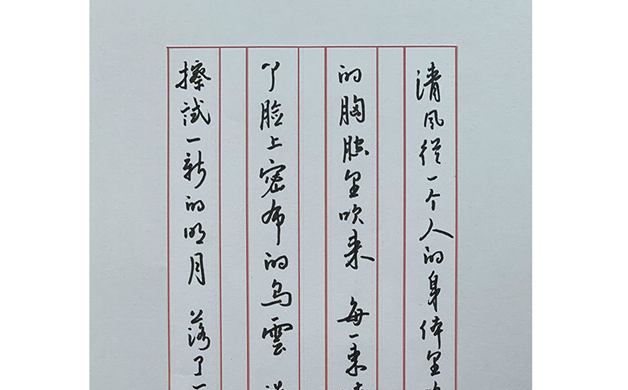 清风从一个人的身体里吹
的胸膛里吹来 每一束
了脸上密布的乌雲
擦试一新的明月 落了一